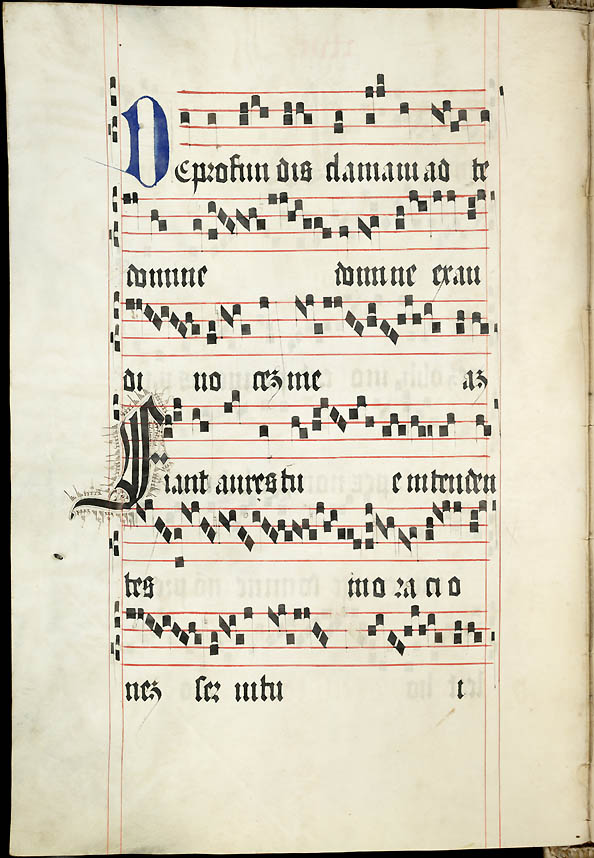 De profun dis clamaui ad te
domine domine exau
di uo cez me az
Fiant aures tu e intenden
tes in o ra ci o
nez ser ui tu i